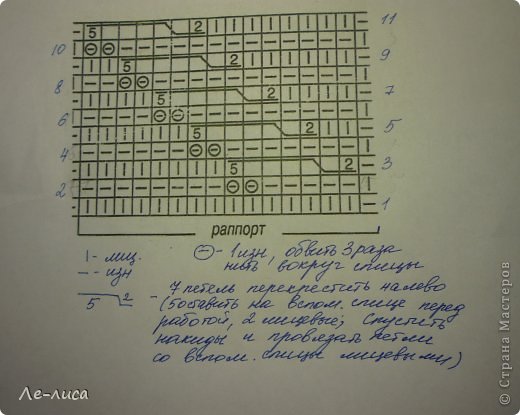 11
5 2
10
9
5 2
8
7
5 2
6
5
5 2
4
3
5 2
2
1
раппорт
I - лиц.
- - изн
⊖ - 1 изн, обвить 3 раза
нить вокруг спицы
5 2 - 7 петель перекрестить налево
(5 оставить на вспом. спице перед
работой, 2 лицевые; спустить
накиды и провязать петли
со вспом. спицы лицевыми)
Ле-лиса
© Страна Мастеров